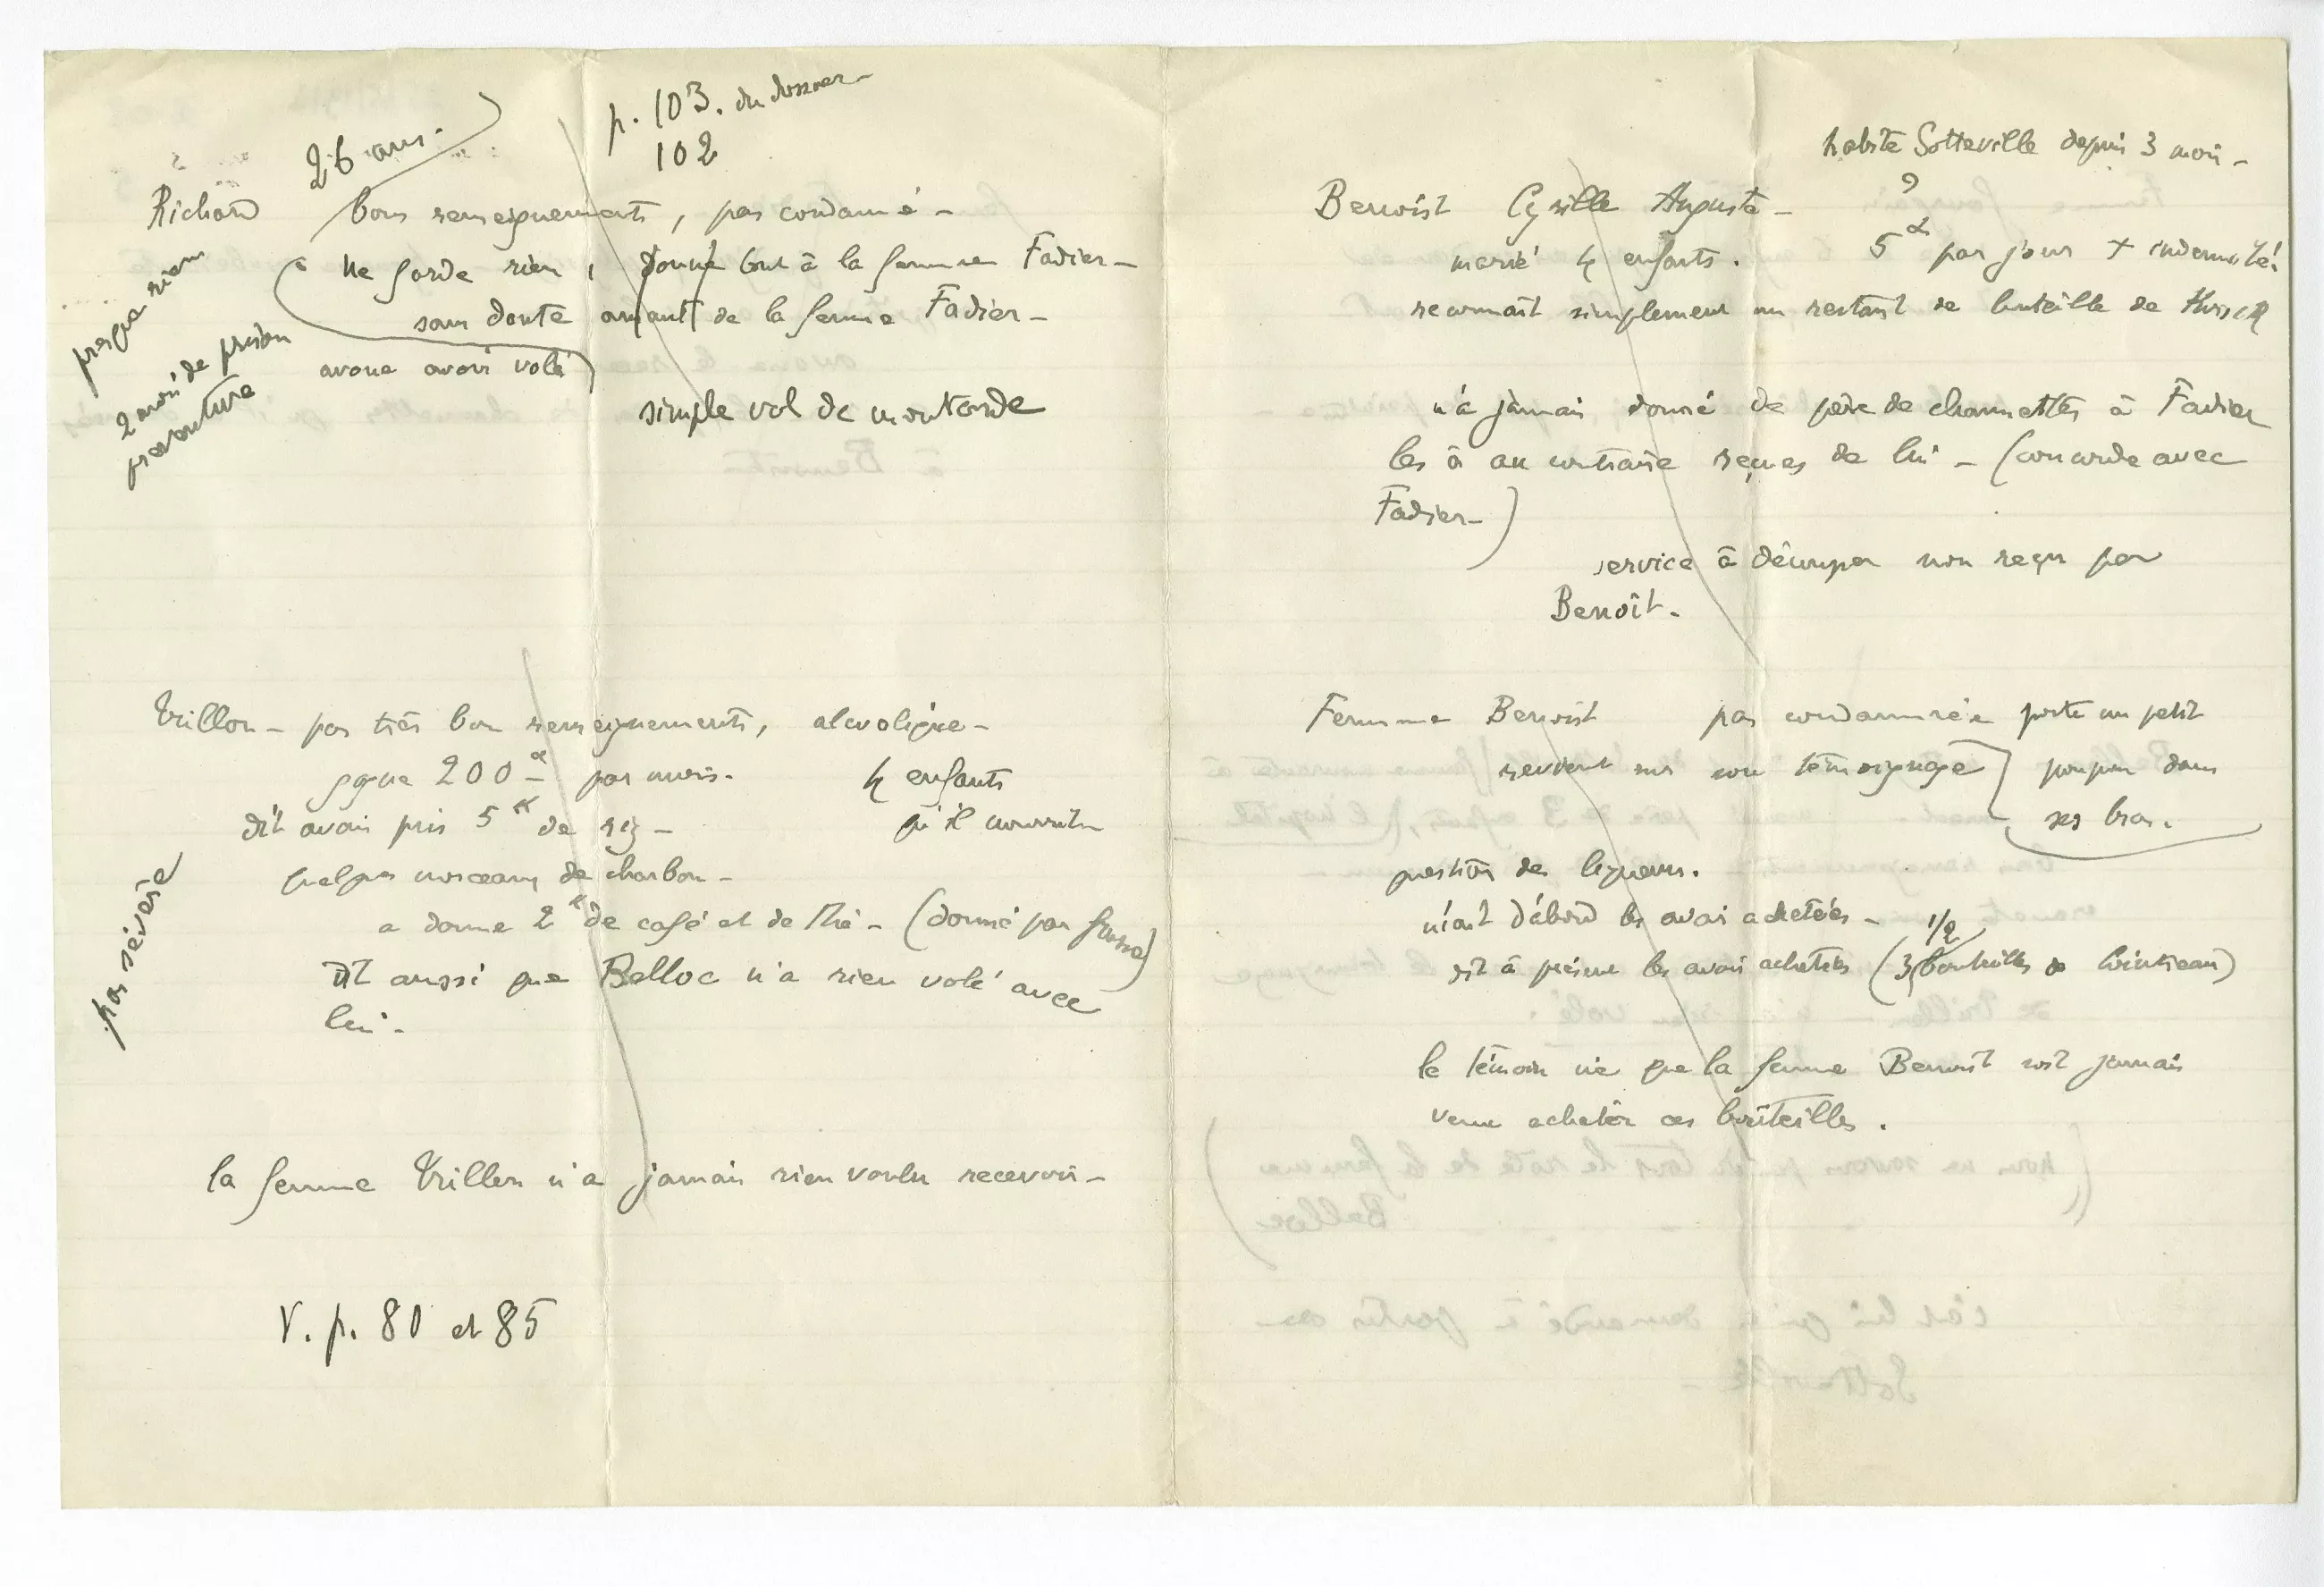 26 ans.
p. 103. du dossier
102
Richard bons renseignements, pas condamné -
Ne garde rien, donne tout à la femme Fadier -
sans doute amant de la femme Fadier -
avoue avoir volé
simple vol de moutarde
presque rien
2 mois de prison
préventive
Trillon - pas très bon renseignements, alcoolique -
gagne 200 par mois.
4 enfants
qu'il nourrit
dit avoir pris 5 K de riz -
quelques morceaux de charbon -
a donné 2 K de café et de thé - (donné par
dit aussi que Belloc n'a rien volé avec
lui -
pas sévère
la femme Trillon n'a jamais rien voulu recevoir -
V. p. 80 et 85
habite Sotteville depuis 3 mois -
?
Benoist Cyrille Auguste -
marié 4 enfants. 5 par jour + indemnité.
reconnait simplement un restant de bouteille de Kirsch
n'a jamais donné de père de chaussettes à Fadier
les a au contraire reçues de lui - (concorde avec
Fadier -)
service à découper non reçu par
Benoît.
Femme Benoist pas condamnée
revient sur son témoignage
porte un petit
poupon dans
ses bras.
question de liqueurs.
niait d'abord les avoir achetées -
dit à présent les avoir achetées (3 1/2 bouteilles de Cointreau)
le témoin nie que la femme Benoist soit jamais
venue acheter ces bouteilles.